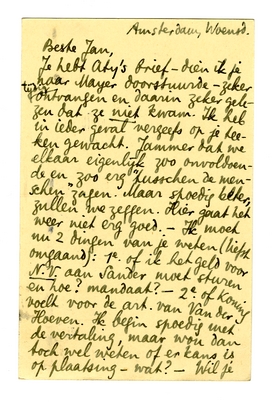 Amsterdam, Woensd.
Beste Jan,
Je hebt Aty's brief – dien ik je
naar Mayer doorstuurde – zeker
tijdig
ontvangen en daarin zeker gele-
zen dat ze niet kwam. Ik heb
in ieder geval vergeefs op je tee-
ken gewacht. Jammer dat we
elkaar eigenlijk zoo onvoldoen-
de en "zoo erg" tusschen de men-
schen zagen. Maar spoedig beter,
zullen we zeggen. Hier gaat het
weer niet erg goed. – Ik moet
nu 2 dingen van je weten (liefst
omgaand): 1e. of ik het geld voor
N.V. aan Sander moet sturen
en hoe? mandaat? – 2e. of Koning
voelt voor de art. van Van der
Hoeven. Ik begin spoedig met
de vertaling, maar wou dan
toch wel weten of er kans is
op plaatsing – wat? – Wil je